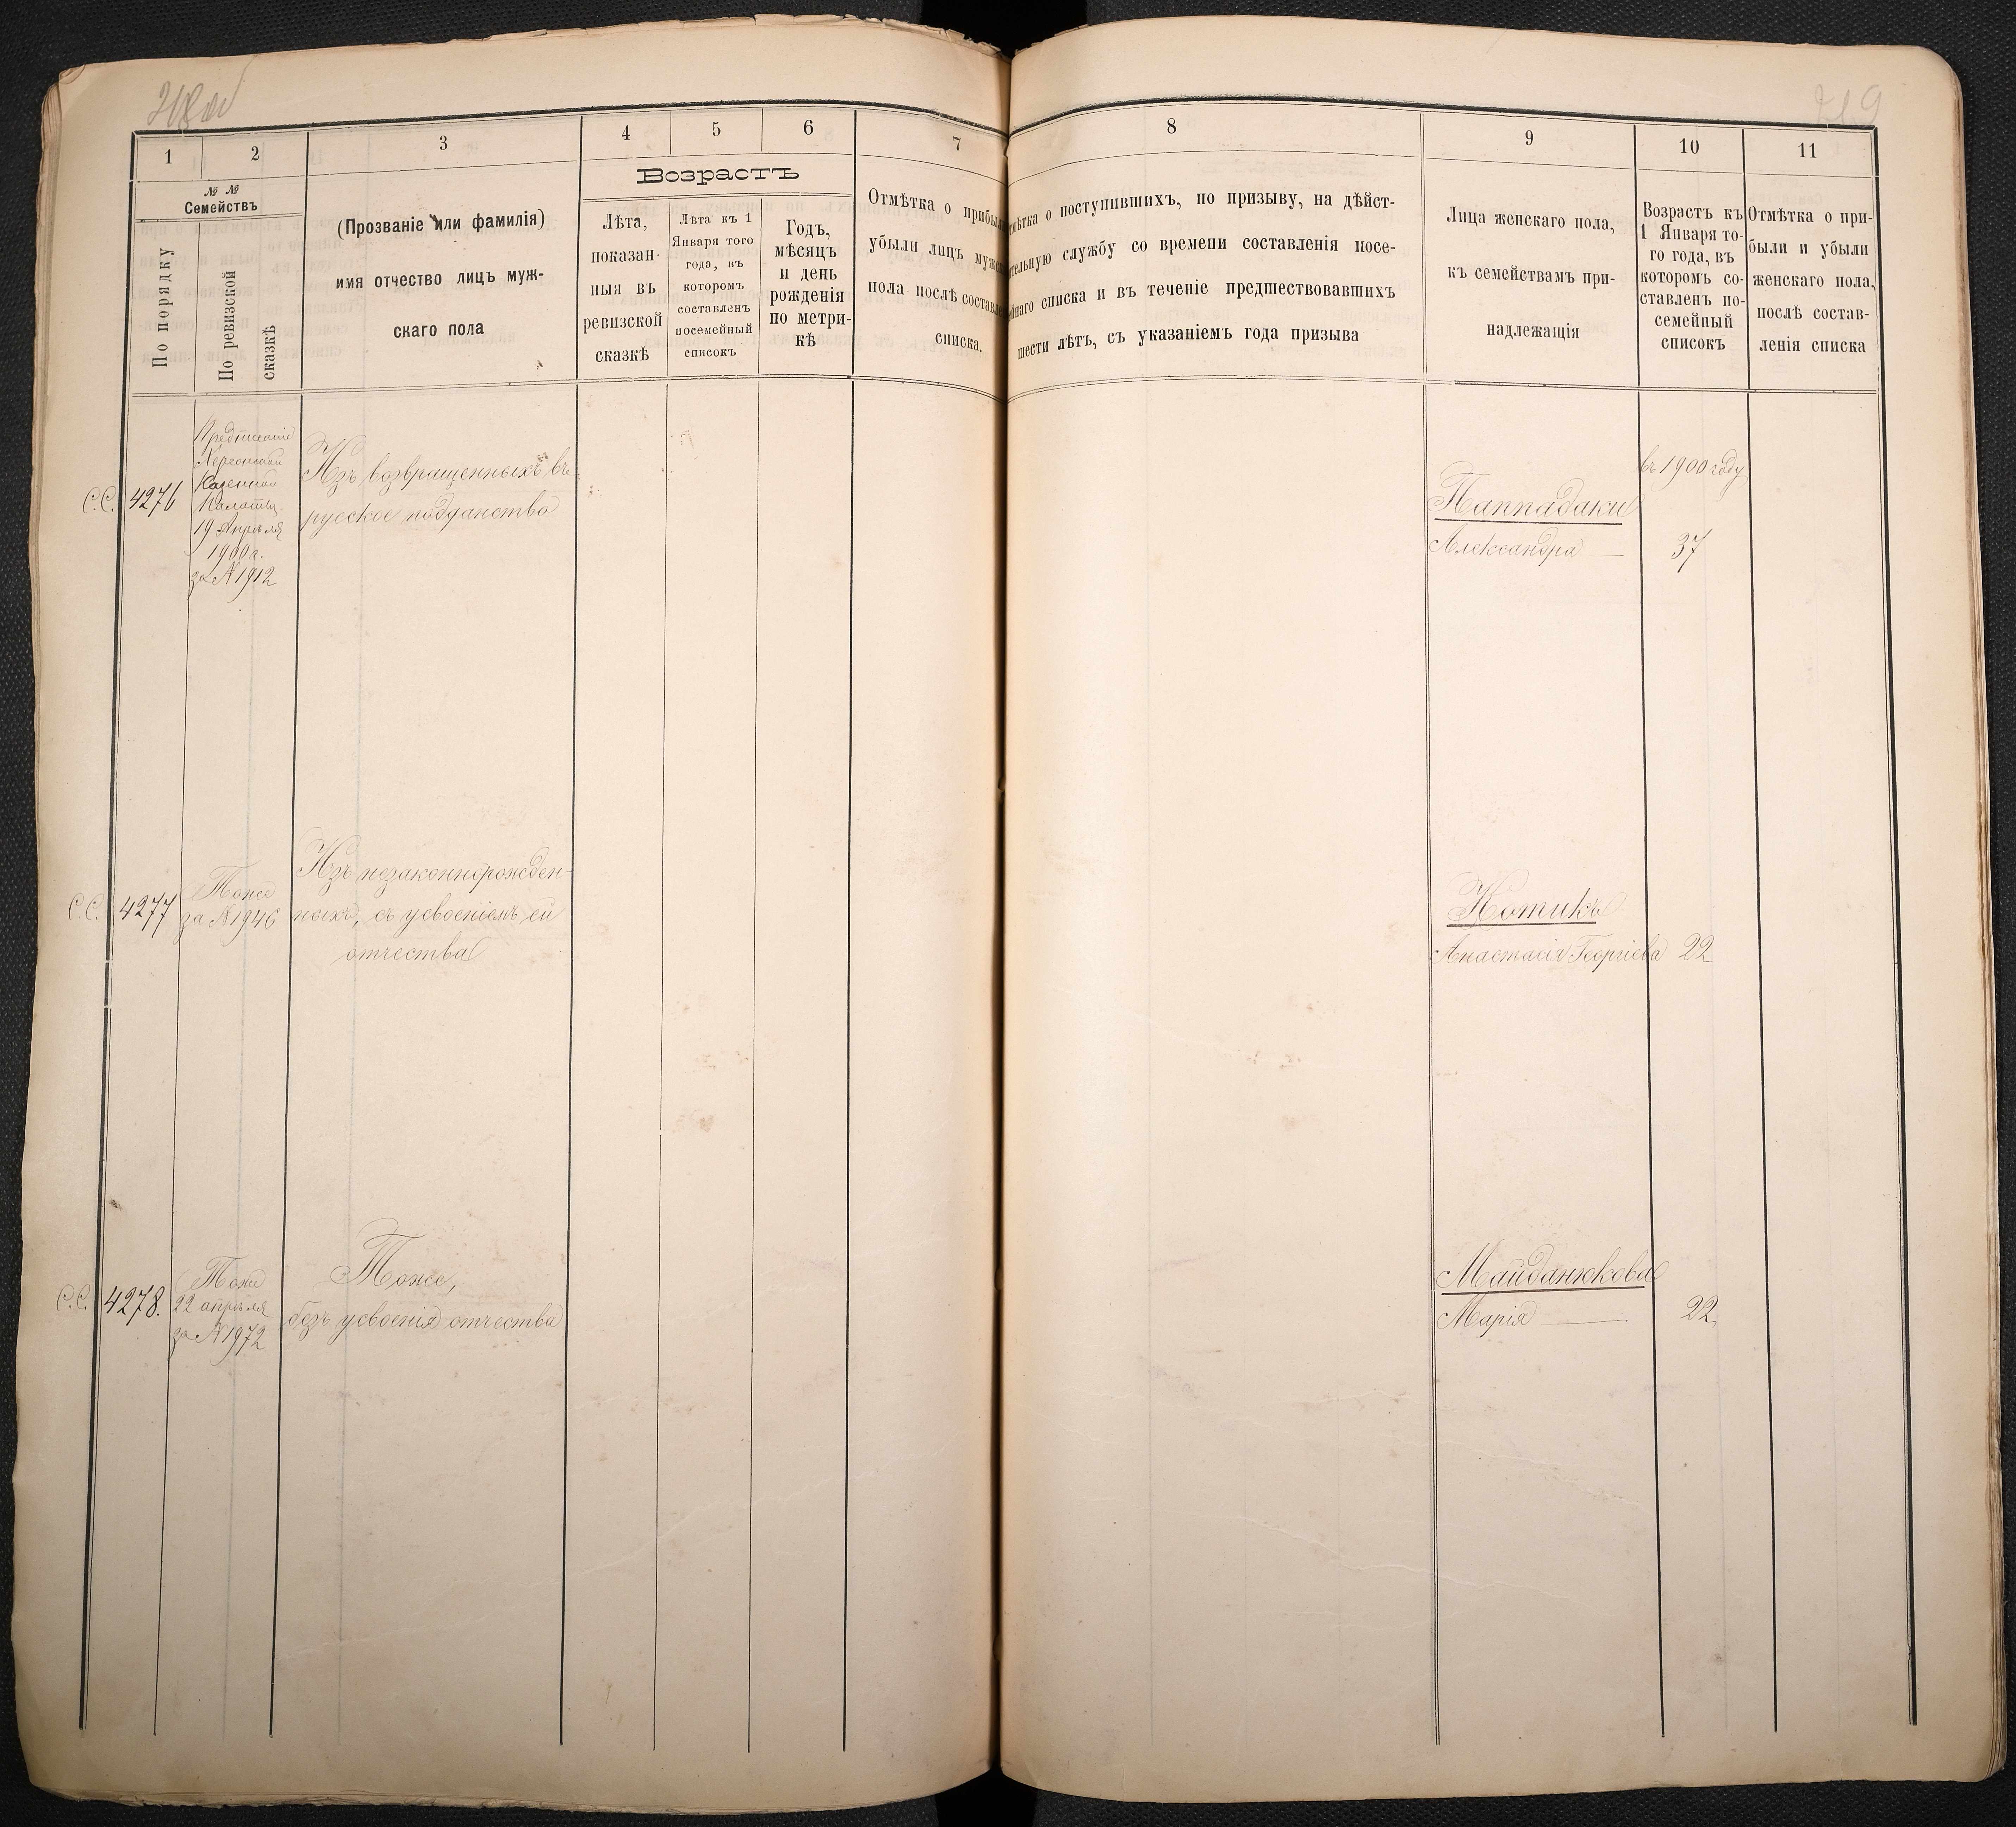 218 об
219
1
2
3
4
5
6
7
8
9
10
11
№ №
Семействъ
По порядку
По ревизской
сказкѣ
(Прозваніе или фамилія)
имя отчество лицъ муж-
скаго пола
Возрастъ
Лѣта,
показан-
ныя въ
ревизской
сказкѣ
Лѣта къ 1
Января того
года, въ
которомъ
составленъ
посемейный
списокъ
Годъ,
мѣсяцъ
и день
рожденія
по метри-
кѣ
Отмѣтка о прибыли
убыли лицъ мужс
пола послѣ составле
списка.
мѣтка о поступившихъ, по призыву, на дѣйст-
ительную службу со времени составленія посе-
ейнаго списка и въ теченіе предшествовавшихъ
шести лѣтъ, съ указаніемъ года призыва
Лица женскаго пола,
къ семействамъ при-
надлежащія
Возрастъ къ
1 Января то-
го года, въ
которомъ со-
ставленъ по-
семейный
списокъ
Отмѣтка о при-
были и убыли
женскаго пола,
послѣ состав-
ленія списка
С.С. 4276
Предписаніе
Херсонской
Казенной
Палаты
19 Апрѣля
1900 г.
за № 1912
Изъ возвращенныхъ въ
русское подданство
въ 1900 году
Паппадаки
Александра — 37
С.С. 4277
Тоже
за № 1946
Изъ незаконнорожден-
ныхъ, съ усвоеніемъ ей
отчества
Котикъ
Анастасія Георгіева 22
С.С. 4278.
Тоже
22 апрѣля
за № 1972
Тоже,
безъ усвоенія отчества
Майданюкова
Марія — 22